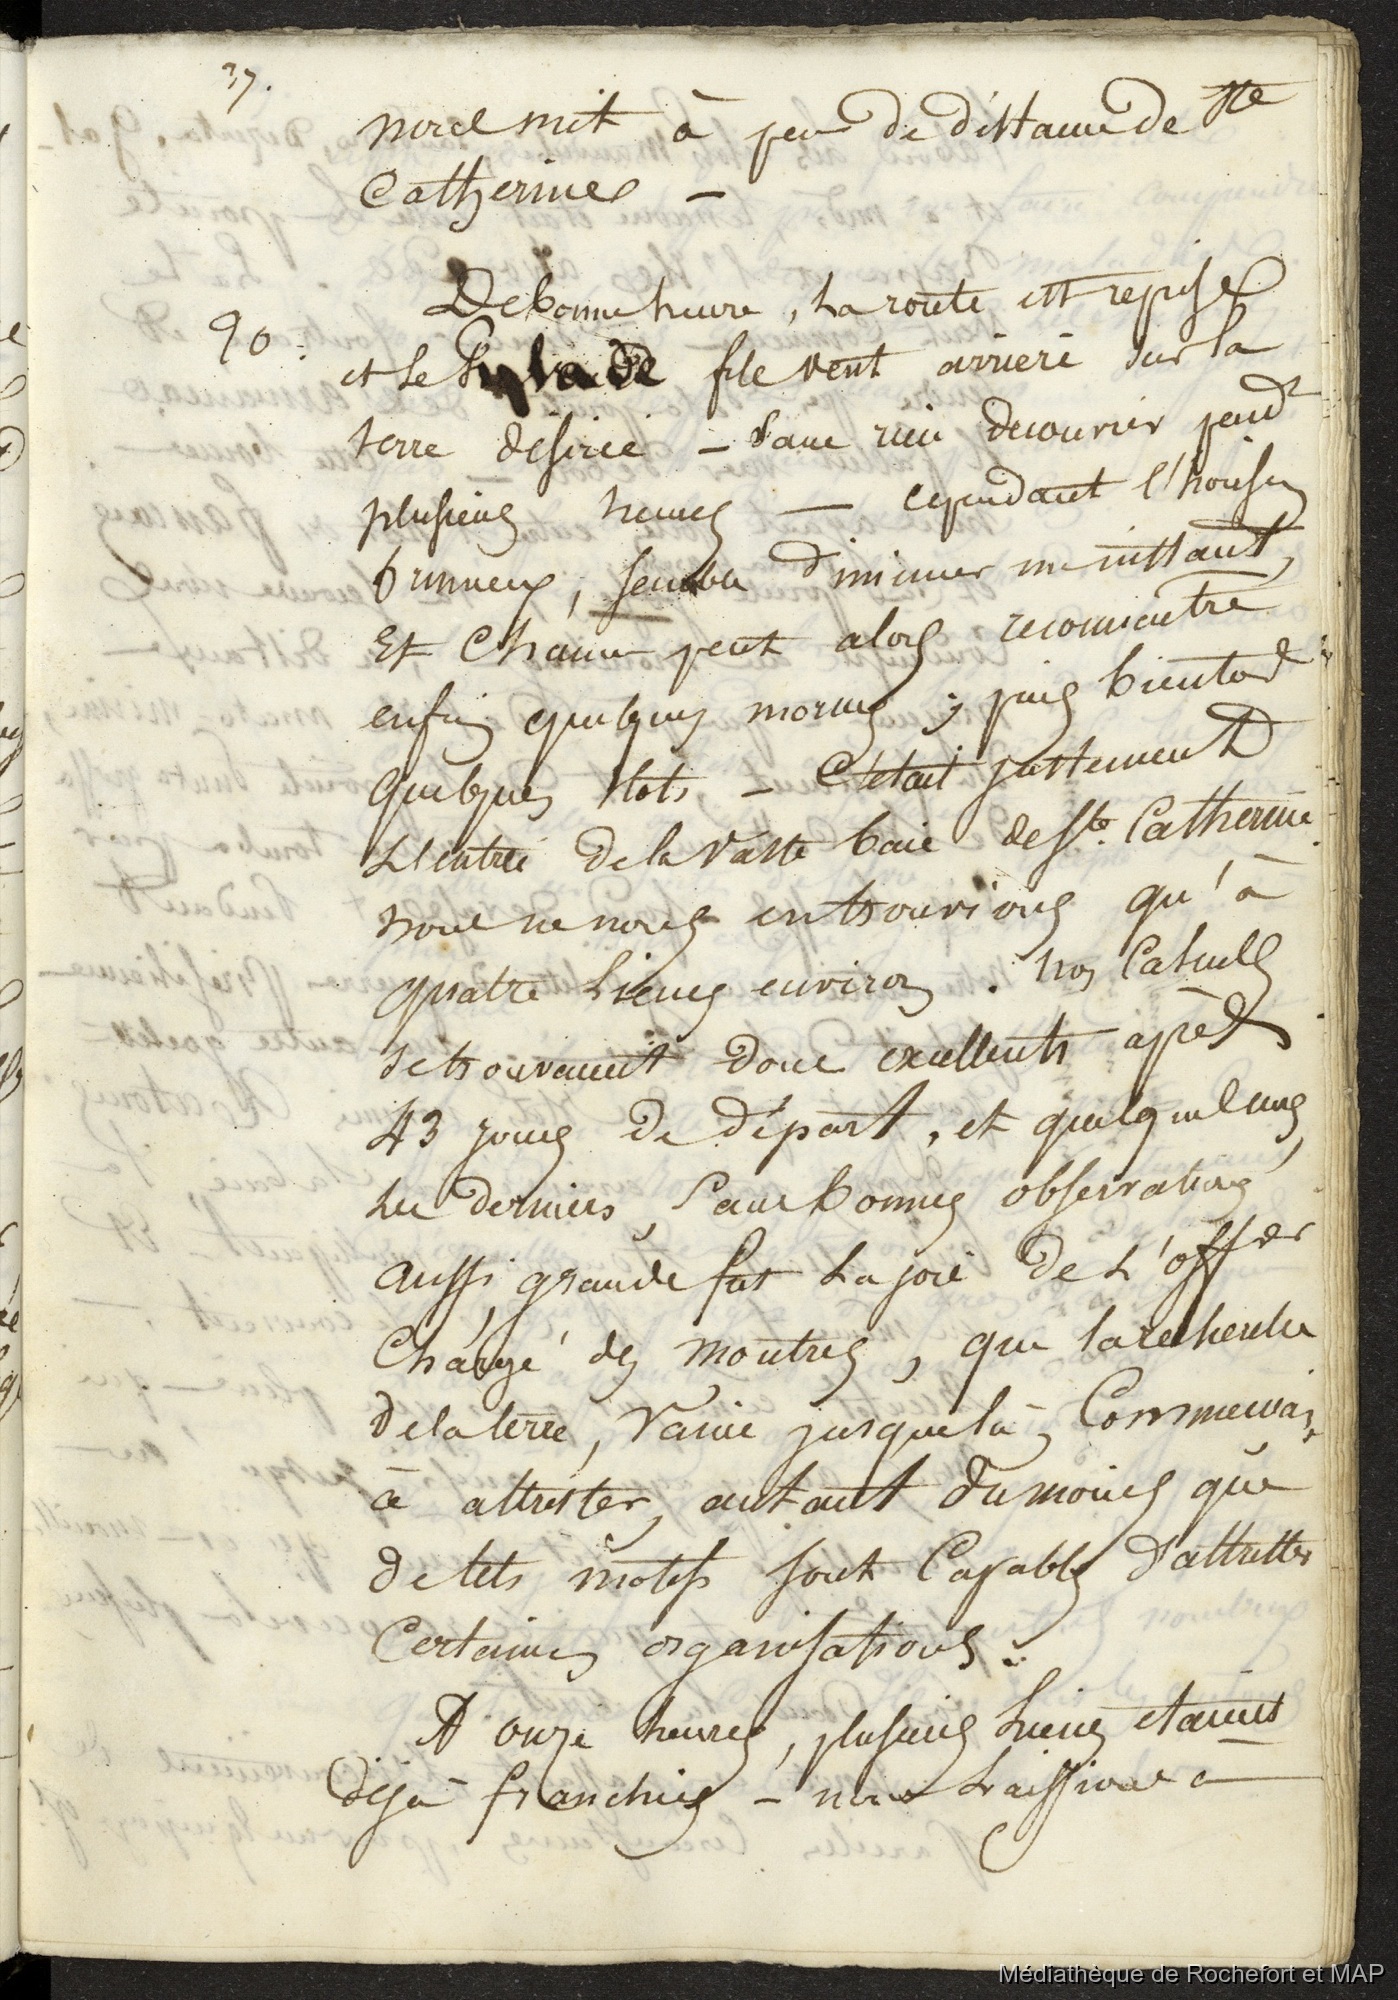 37.
nous mit à peu de distance de Ste
Catherine –
De bonne heure, la route est reprise
90.
et le Pylade file vent arrière sur la
terre désirée – sans rien découvrir pendt
plusieurs heures – cependant l'horison
brumeux, sembla diminuer un instant,
Et Chacun peut alors reconnaitre
enfin quelques mornes ; puis bientot
quelques Ilots – C'était justement
L'entrée de la vaste baie de Ste. Catherine.
nous ne nous en trouvions qu'à
quatre Lieues environ. nos Calculs
se trouvaient donc excellents après
43 jours de départ, et quelques uns,
les derniers, sans bonnes observations
aussi, grande fut la joie de L'offer
Chargé des montres, que la recherche
de la terre, vaine jusque là, Commençait
à attrister, autant du moins que
de tels motifs sont Capables d'attrister
Certaines organisations.
A onze heures, plusieurs lieues étaient
Déjà franchies – nous Laissions à
Médiathèque de Rochefort et MAP